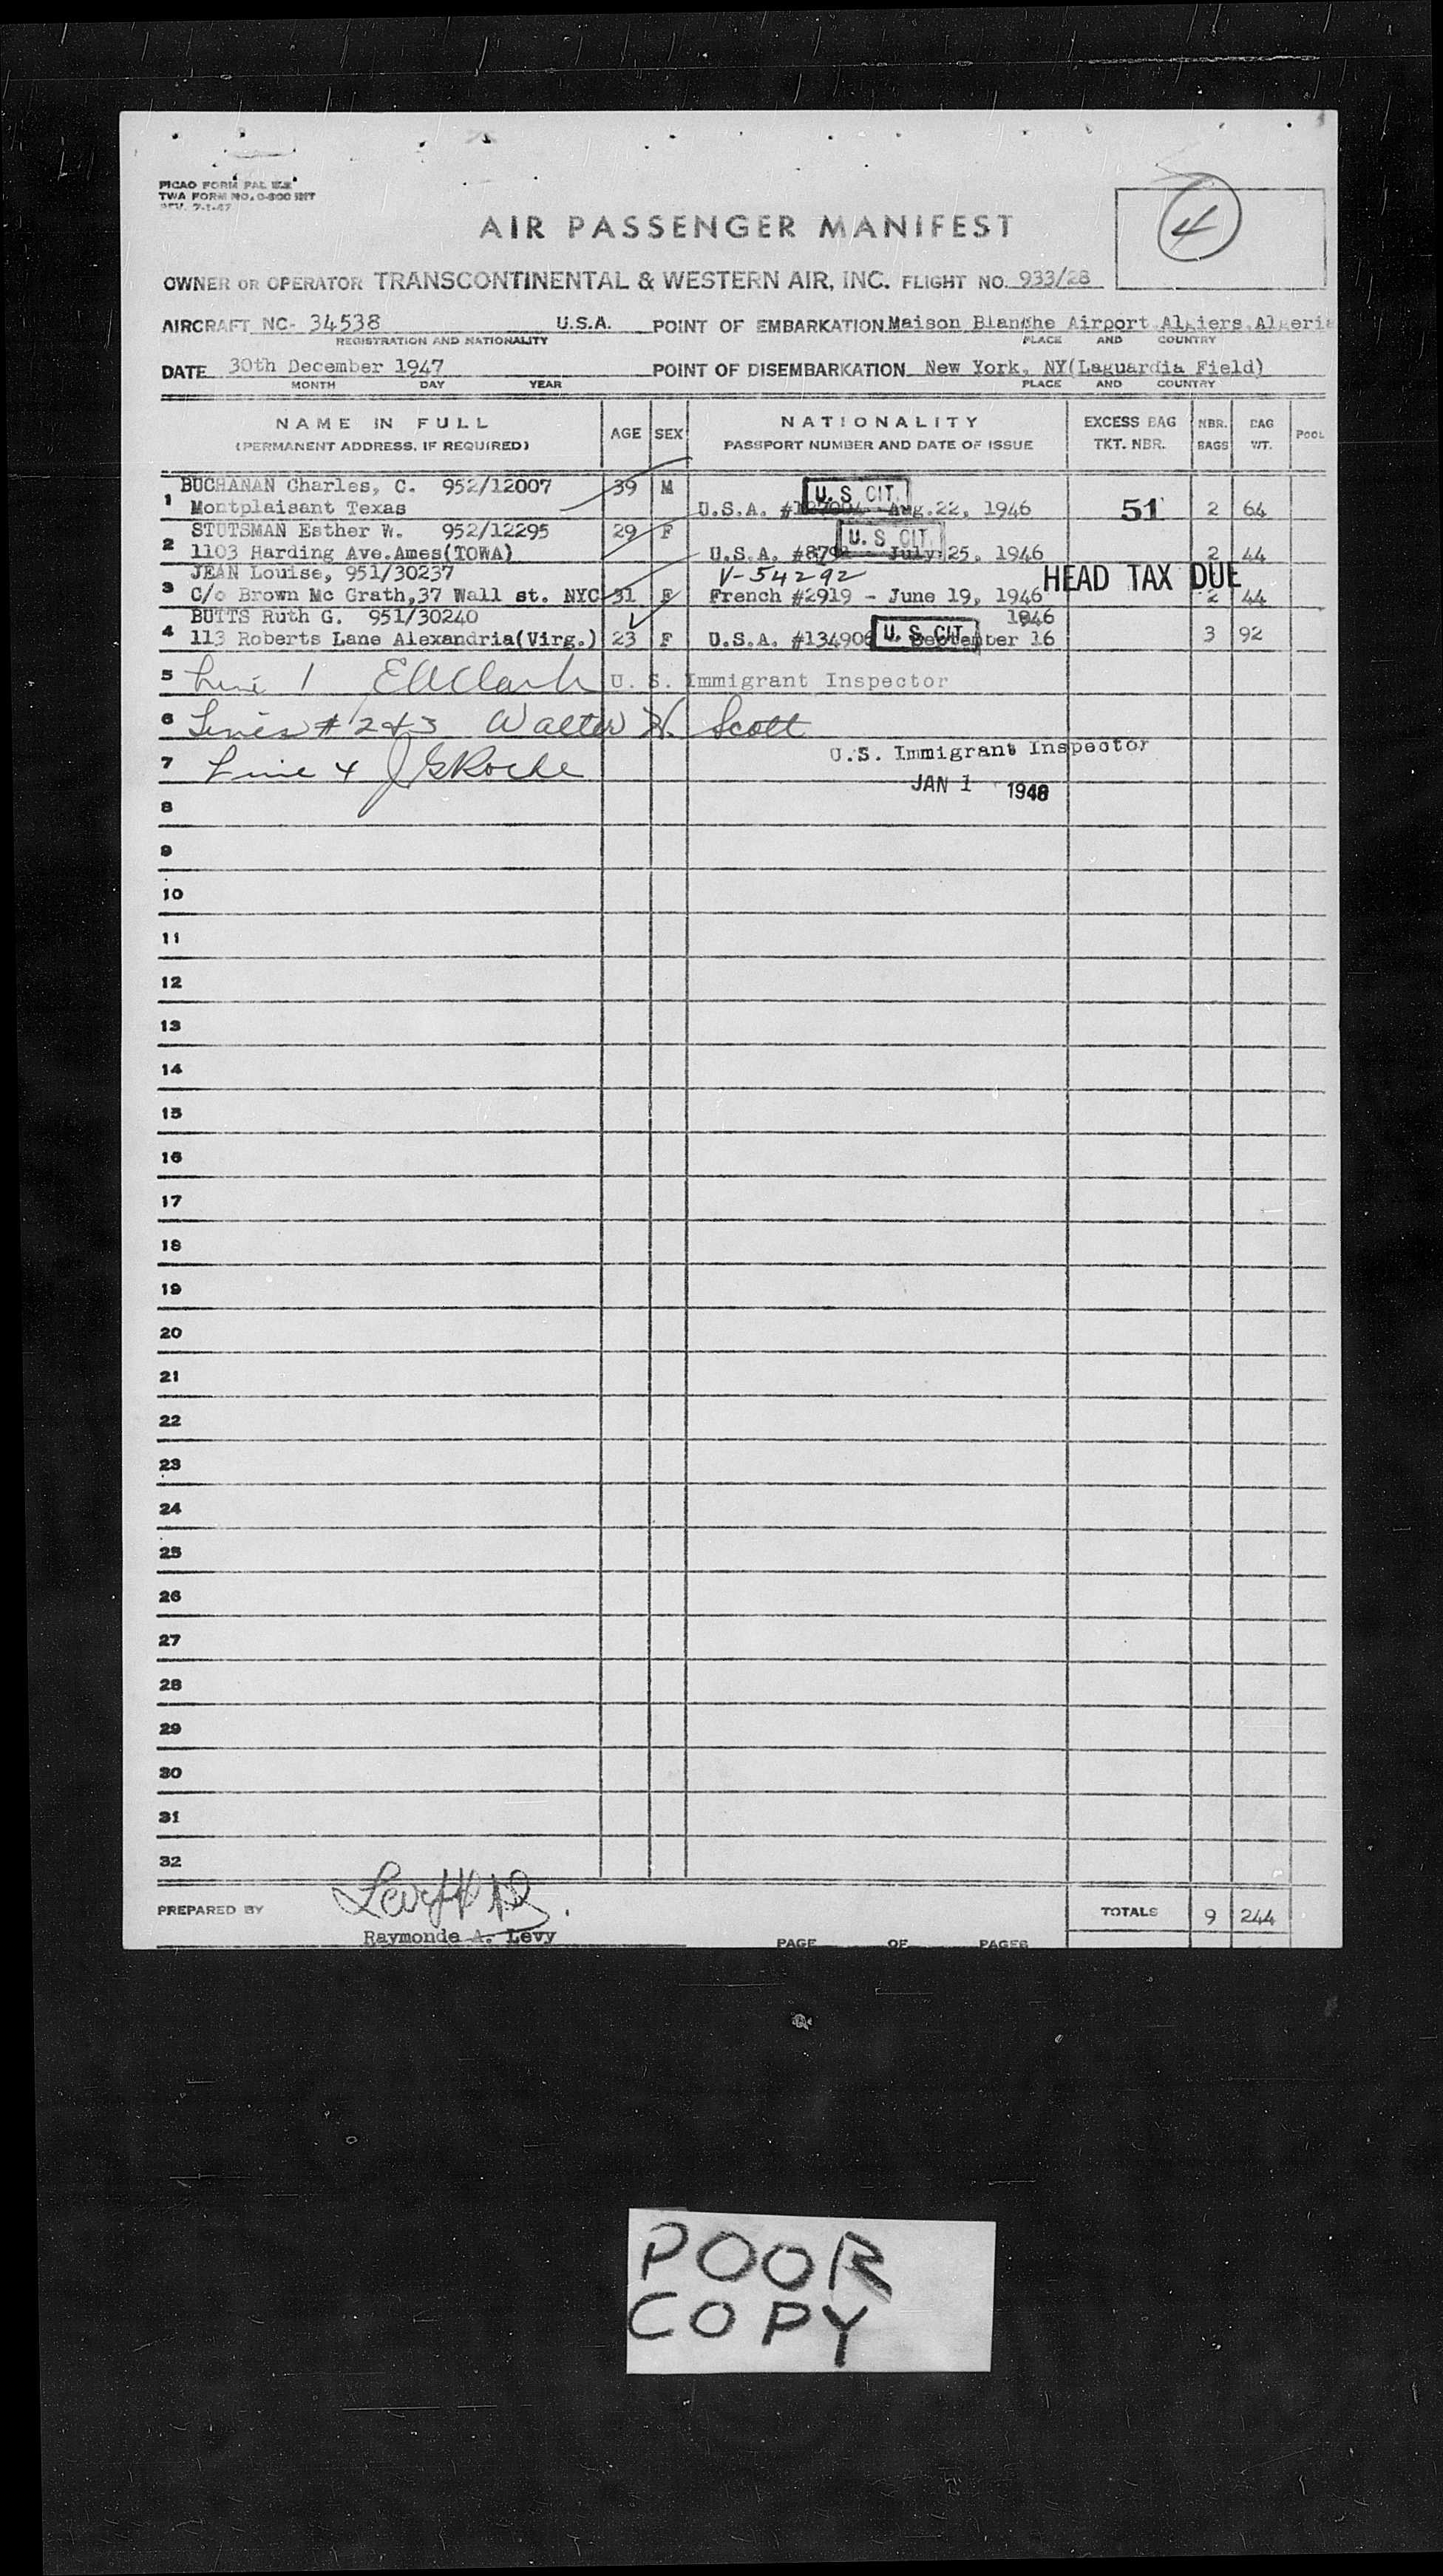 PICAO FORM PAL
TWA FORM NO. 0-800 INT
REV. 7-1-47
4
AIR PASSENGER MANIFEST
OWNER OR OPERATOR TRANSCONTINENTAL & WESTERN AIR, INC. FLIGHT NO. 933/28
AIRCRAFT NC- 34538 U.S.A. POINT OF EMBARKATION Maison Blanche Airport Algiers, Algeria
REGISTRATION AND NATIONALITY PLACE AND COUNTRY
DATE 30th December 1947 POINT OF DISEMBARKATION New York, NY(Laguardia Field)
MONTH DAY YEAR PLACE AND COUNTRY
NAME IN FULL AGE SEX NATIONALITY EXCESS BAG NBR. BAG POOL
(PERMANENT ADDRESS, IF REQUIRED) PASSPORT NUMBER AND DATE OF ISSUE TKT. NBR. BAGS WT.
BUCHANAN Charles, C. 952/12007 39 M U. S. CIT.
1 Montplaisant Texas U.S.A. Aug.22, 1946 51 2 64
STUTSMAN Esther W. 952/12295 29 F U. S. CIT.
2 1103 Harding Ave.Ames(IOWA) U.S.A. July 25, 1946 2 44
JEAN Louise, 951/30237 V-54292 HEAD TAX DUE
3 C/o Brown Mc Grath,37 Wall st. NYC 31 F French #2919 - June 19, 1946 2 44
BUTTS Ruth G. 951/30240 1946
4 113 Roberts Lane Alexandria(Virg.) 23 F U.S.A. #134906 U. S. CIT. September 16 3 92
5 Line 1 E A Clark U. S. Immigrant Inspector
6 Lines # 2 & 3 Walter H. Scott
U.S. Immigrant Inspector
7 Line 4 J G Roche
JAN 1 1948
8
9
10
11
12
13
14
15
16
17
18
19
20
21
22
23
24
25
26
27
28
29
30
31
32
PREPARED BY TOTALS 9 244
Raymonde A. Levy
PAGE OF PAGES
POOR
COPY